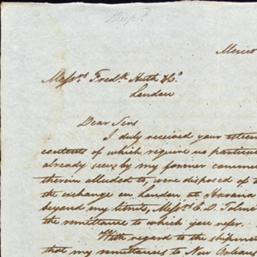 Mexico
Messrs. Fredk. Huth & Co.
London
Dear Sirs
I duly received your esteem
contents of which require no particu
already seen by my former commu
therein alluded to, were disposed of a
the exchange on London at Havana
beyond my limits, Messrs. S. D. Tolme
the remittance to which you refer.
With regard to the shipme
that my remittances to New Orleans